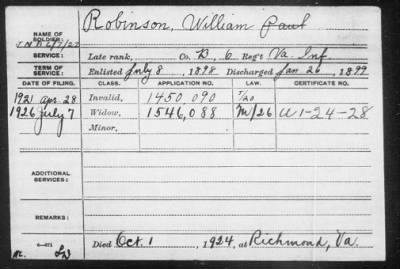 NAME OF SOLDIER:
Robinson, William Paul
SERVICE:
Late rank, Co. B, 6 Reg't Va. Inf.
TERM OF SERVICE:
Enlisted July 8, 1898 Discharged Jan 26, 1899
DATE OF FILING. CLASS. APPLICATION NO. LAW. CERTIFICATE NO.
1921 apr. 28 Invalid, 1450,090
1926 July 7 Widow, 1546,088 M/26 W 1-24-28
Minor,
ADDITIONAL SERVICES:
REMARKS:
Died Oct. 1, 1924, at Richmond, Va.